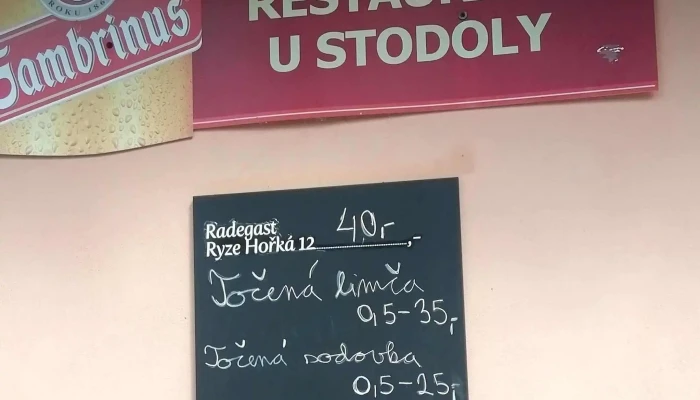 ROKU 18
Gambrinus
RESTAU
U STODOLY
Radegast
Ryze Hořká 12 40,-
Točená limča
0,5-35,-
Točená sodovka
0,5-25,-